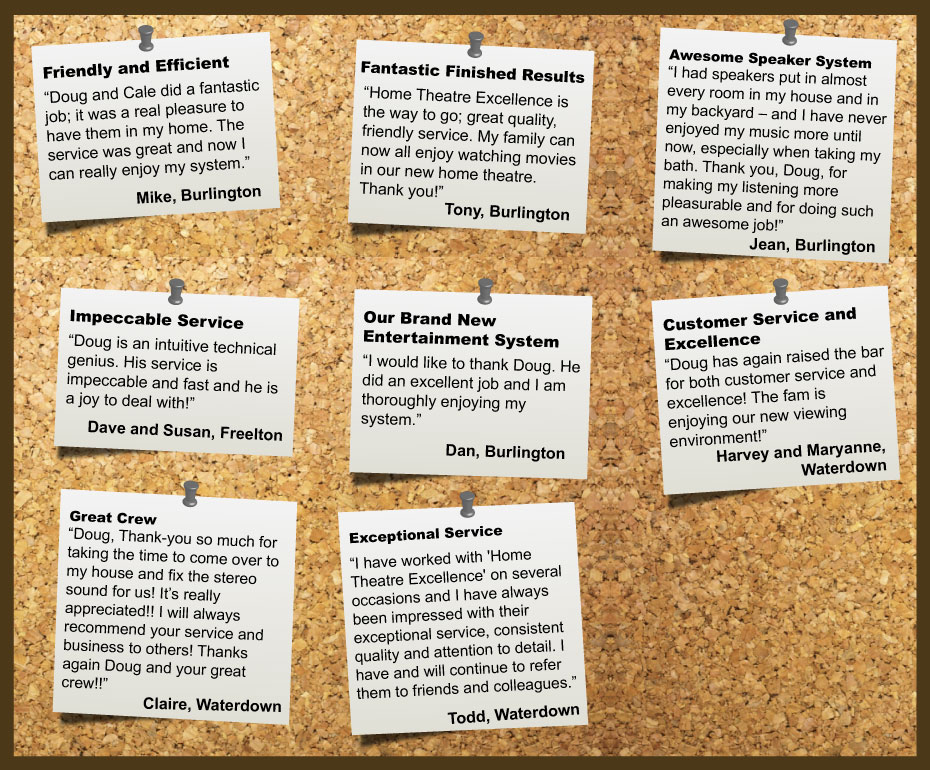 Friendly and Efficient
“Doug and Cale did a fantastic
job; it was a real pleasure to
have them in my home. The
service was great and now I
can really enjoy my system.”
Mike, Burlington
Fantastic Finished Results
“Home Theatre Excellence is
the way to go; great quality,
friendly service. My family can
now all enjoy watching movies
in our new home theatre.
Thank you!”
Tony, Burlington
Awesome Speaker System
“I had speakers put in almost
every room in my house and in
my backyard – and I have never
enjoyed my music more until
now, especially when taking my
bath. Thank you, Doug, for
making my listening more
pleasurable and for doing such
an awesome job!”
Jean, Burlington
Impeccable Service
“Doug is an intuitive technical
genius. His service is
impeccable and fast and he is
a joy to deal with!”
Dave and Susan, Freelton
Our Brand New
Entertainment System
“I would like to thank Doug. He
did an excellent job and I am
thoroughly enjoying my
system.”
Dan, Burlington
Customer Service and
Excellence
“Doug has again raised the bar
for both customer service and
excellence! The fam is
enjoying our new viewing
environment!”
Harvey and Maryanne,
Waterdown
Great Crew
“Doug, Thank-you so much for
taking the time to come over to
my house and fix the stereo
sound for us! It’s really
appreciated!! I will always
recommend your service and
business to others! Thanks
again Doug and your great
crew!!”
Claire, Waterdown
Exceptional Service
“I have worked with 'Home
Theatre Excellence' on several
occasions and I have always
been impressed with their
exceptional service, consistent
quality and attention to detail. I
have and will continue to refer
them to friends and colleagues.”
Todd, Waterdown